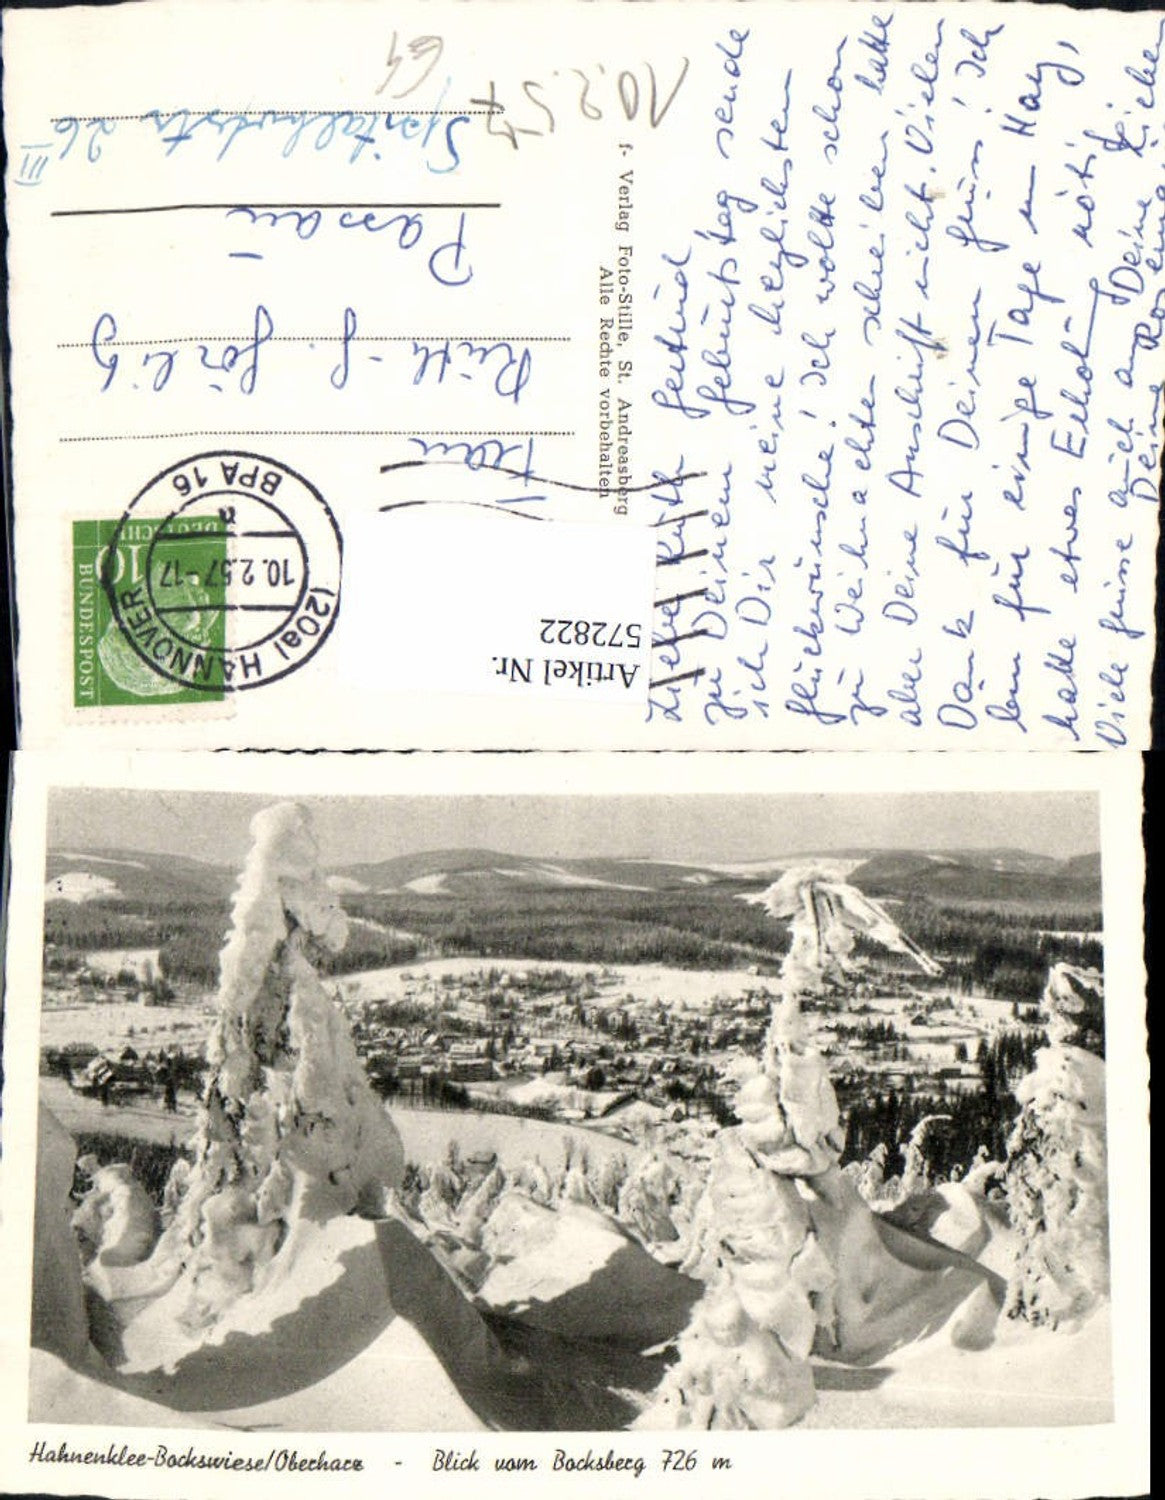 Liebe Ruth Gertrud
zu Deinem Geburtstag sende
ich Dir meine herzlichsten
Glückwünsche! Ich wollte schon
zu Weihnachten schreiben hatte
aber Deine Anschrift nicht. Vielen
Dank für Deinen Gruss! Ich
bin für einige Tage im Harz,
hatte etwas Erholung nötig
Viele Grüsse auch an Deine Lieben
Deine Rosemarie
f- Verlag Foto-Stille, St. Andreasberg
Alle Rechte vorbehalten
Frau
Ruth-G. Görlitz
Passau
Spitalhofstr. 26 III
10.2.57
64
DEUTSCHE
BUNDESPOST
10
(20a) HANNOVER
10.2.57-17
a
BPA 16
Artikel Nr.
572822
Hahnenklee-Bockswiese/Oberharz - Blick vom Bocksberg 726 m